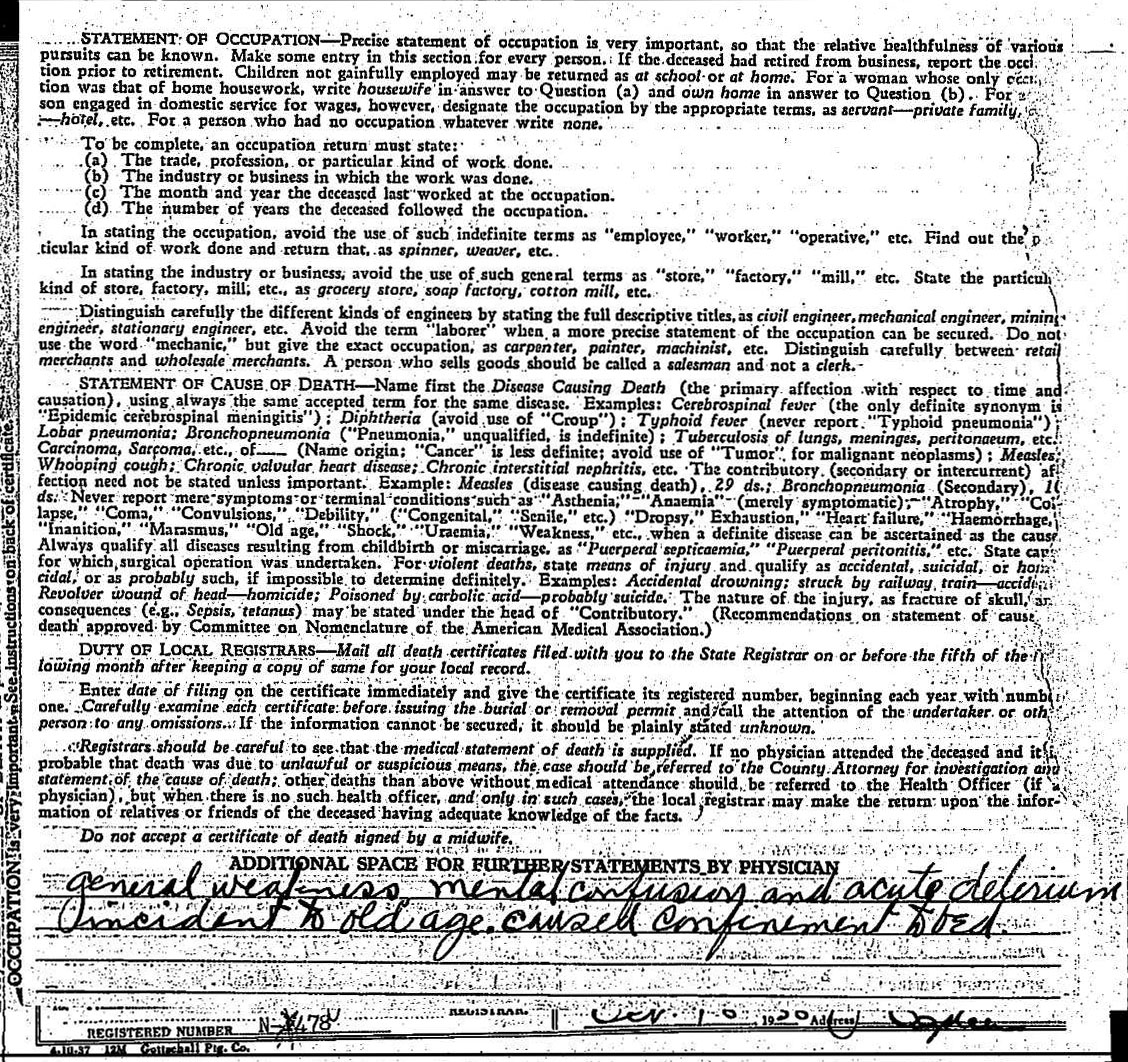 STATEMENT OF OCCUPATION—Precise statement of occupation is very important, so that the relative healthfulness of various
pursuits can be known. Make some entry in this section for every person. If the deceased had retired from business, report the
tion prior to retirement. Children not gainfully employed may be returned as at school or at home. For a woman whose only
tion was that of home housework, write housewife in answer to Question (a) and own home in answer to Question (b). For
son engaged in domestic service for wages, however, designate the occupation by the appropriate terms, as servant—private family,
—hotel, etc. For a person who had no occupation whatever write none.
To be complete, an occupation return must state:
(a) The trade, profession, or particular kind of work done.
(b) The industry or business in which the work was done.
(c) The month and year the deceased last worked at the occupation.
(d) The number of years the deceased followed the occupation.
In stating the occupation, avoid the use of such indefinite terms as "employee," "worker," "operative," etc. Find out the p
ticular kind of work done and return that, as spinner, weaver, etc.
In stating the industry or business, avoid the use of such general terms as "store," "factory," "mill," etc. State the particul
kind of store, factory, mill, etc., as grocery store, soap factory, cotton mill, etc.
Distinguish carefully the different kinds of engineers by stating the full descriptive titles, as civil engineer, mechanical engineer, mining
engineer, stationary engineer, etc. Avoid the term "laborer" when a more precise statement of the occupation can be secured. Do not
use the word "mechanic," but give the exact occupation, as carpenter, painter, machinist, etc. Distinguish carefully between retail
merchants and wholesale merchants. A person who sells goods should be called a salesman and not a clerk.
STATEMENT OF CAUSE OF DEATH—Name first the Disease Causing Death (the primary affection with respect to time and
causation), using always the same accepted term for the same disease. Examples: Cerebrospinal fever (the only definite synonym is
"Epidemic cerebrospinal meningitis"); Diphtheria (avoid use of "Croup"); Typhoid fever (never report "Typhoid pneumonia")
Lobar pneumonia; Bronchopneumonia ("Pneumonia," unqualified, is indefinite); Tuberculosis of lungs, meninges, peritonaeum, etc.
Carcinoma, Sarcoma, etc., of (Name origin; "Cancer" is less definite; avoid use of "Tumor" for malignant neoplasms); Measles;
Whooping cough; Chronic valvular heart disease; Chronic interstitial nephritis, etc. The contributory (secondary or intercurrent) af
fection need not be stated unless important. Example: Measles (disease causing death), 29 ds.; Bronchopneumonia (Secondary), 1
ds. Never report mere symptoms or terminal conditions such as "Asthenia," "Anaemia" (merely symptomatic), "Atrophy," "Col
lapse," "Coma," "Convulsions," "Debility," ("Congenital," "Senile," etc.) "Dropsy," Exhaustion," "Heart failure," "Haemorrhage,
"Inanition," "Marasmus," "Old age," "Shock," "Uraemia," "Weakness," etc., when a definite disease can be ascertained as the cause
Always qualify all diseases resulting from childbirth or miscarriage, as "Puerperal septicaemia," "Puerperal peritonitis," etc. State
for which surgical operation was undertaken. For violent deaths, state means of injury and qualify as accidental, suicidal, or
cidal, or as probably such, if impossible to determine definitely. Examples: Accidental drowning; struck by railway train—
Revolver wound of head—homicide; Poisoned by carbolic acid—probably suicide. The nature of the injury, as fracture of skull,
consequences (e.g., Sepsis, tetanus) may be stated under the head of "Contributory." (Recommendations on statement of cause
death approved by Committee on Nomenclature of the American Medical Association.)
DUTY OF LOCAL REGISTRARS—Mail all death certificates filed with you to the State Registrar on or before the fifth of the
lowing month after keeping a copy of same for your local record.
Enter date of filing on the certificate immediately and give the certificate its registered number, beginning each year with
one. Carefully examine each certificate before issuing the burial or removal permit and call the attention of the undertaker or oth
person to any omissions. If the information cannot be secured, it should be plainly stated unknown.
Registrars should be careful to see that the medical statement of death is supplied. If no physician attended the deceased and it
probable that death was due to unlawful or suspicious means, the case should be referred to the County Attorney for investigation and
statement of the cause of death; other deaths than above without medical attendance should be referred to the Health Officer (if a
physician), but when there is no such health officer, and only in such cases, the local registrar may make the return upon the infor-
mation of relatives or friends of the deceased having adequate knowledge of the facts.
Do not accept a certificate of death signed by a midwife.
ADDITIONAL SPACE FOR FURTHER STATEMENTS BY PHYSICIAN
general weakness mental confusion and acute delerium
incident to old age caused confinement to bed.
REGISTRAR.
REGISTERED NUMBER N-478 1930 Address Ogden
4-10-37 12M Gottschall Ptg. Co.
OCCUPATION is very important. See instructions on back of certificate.